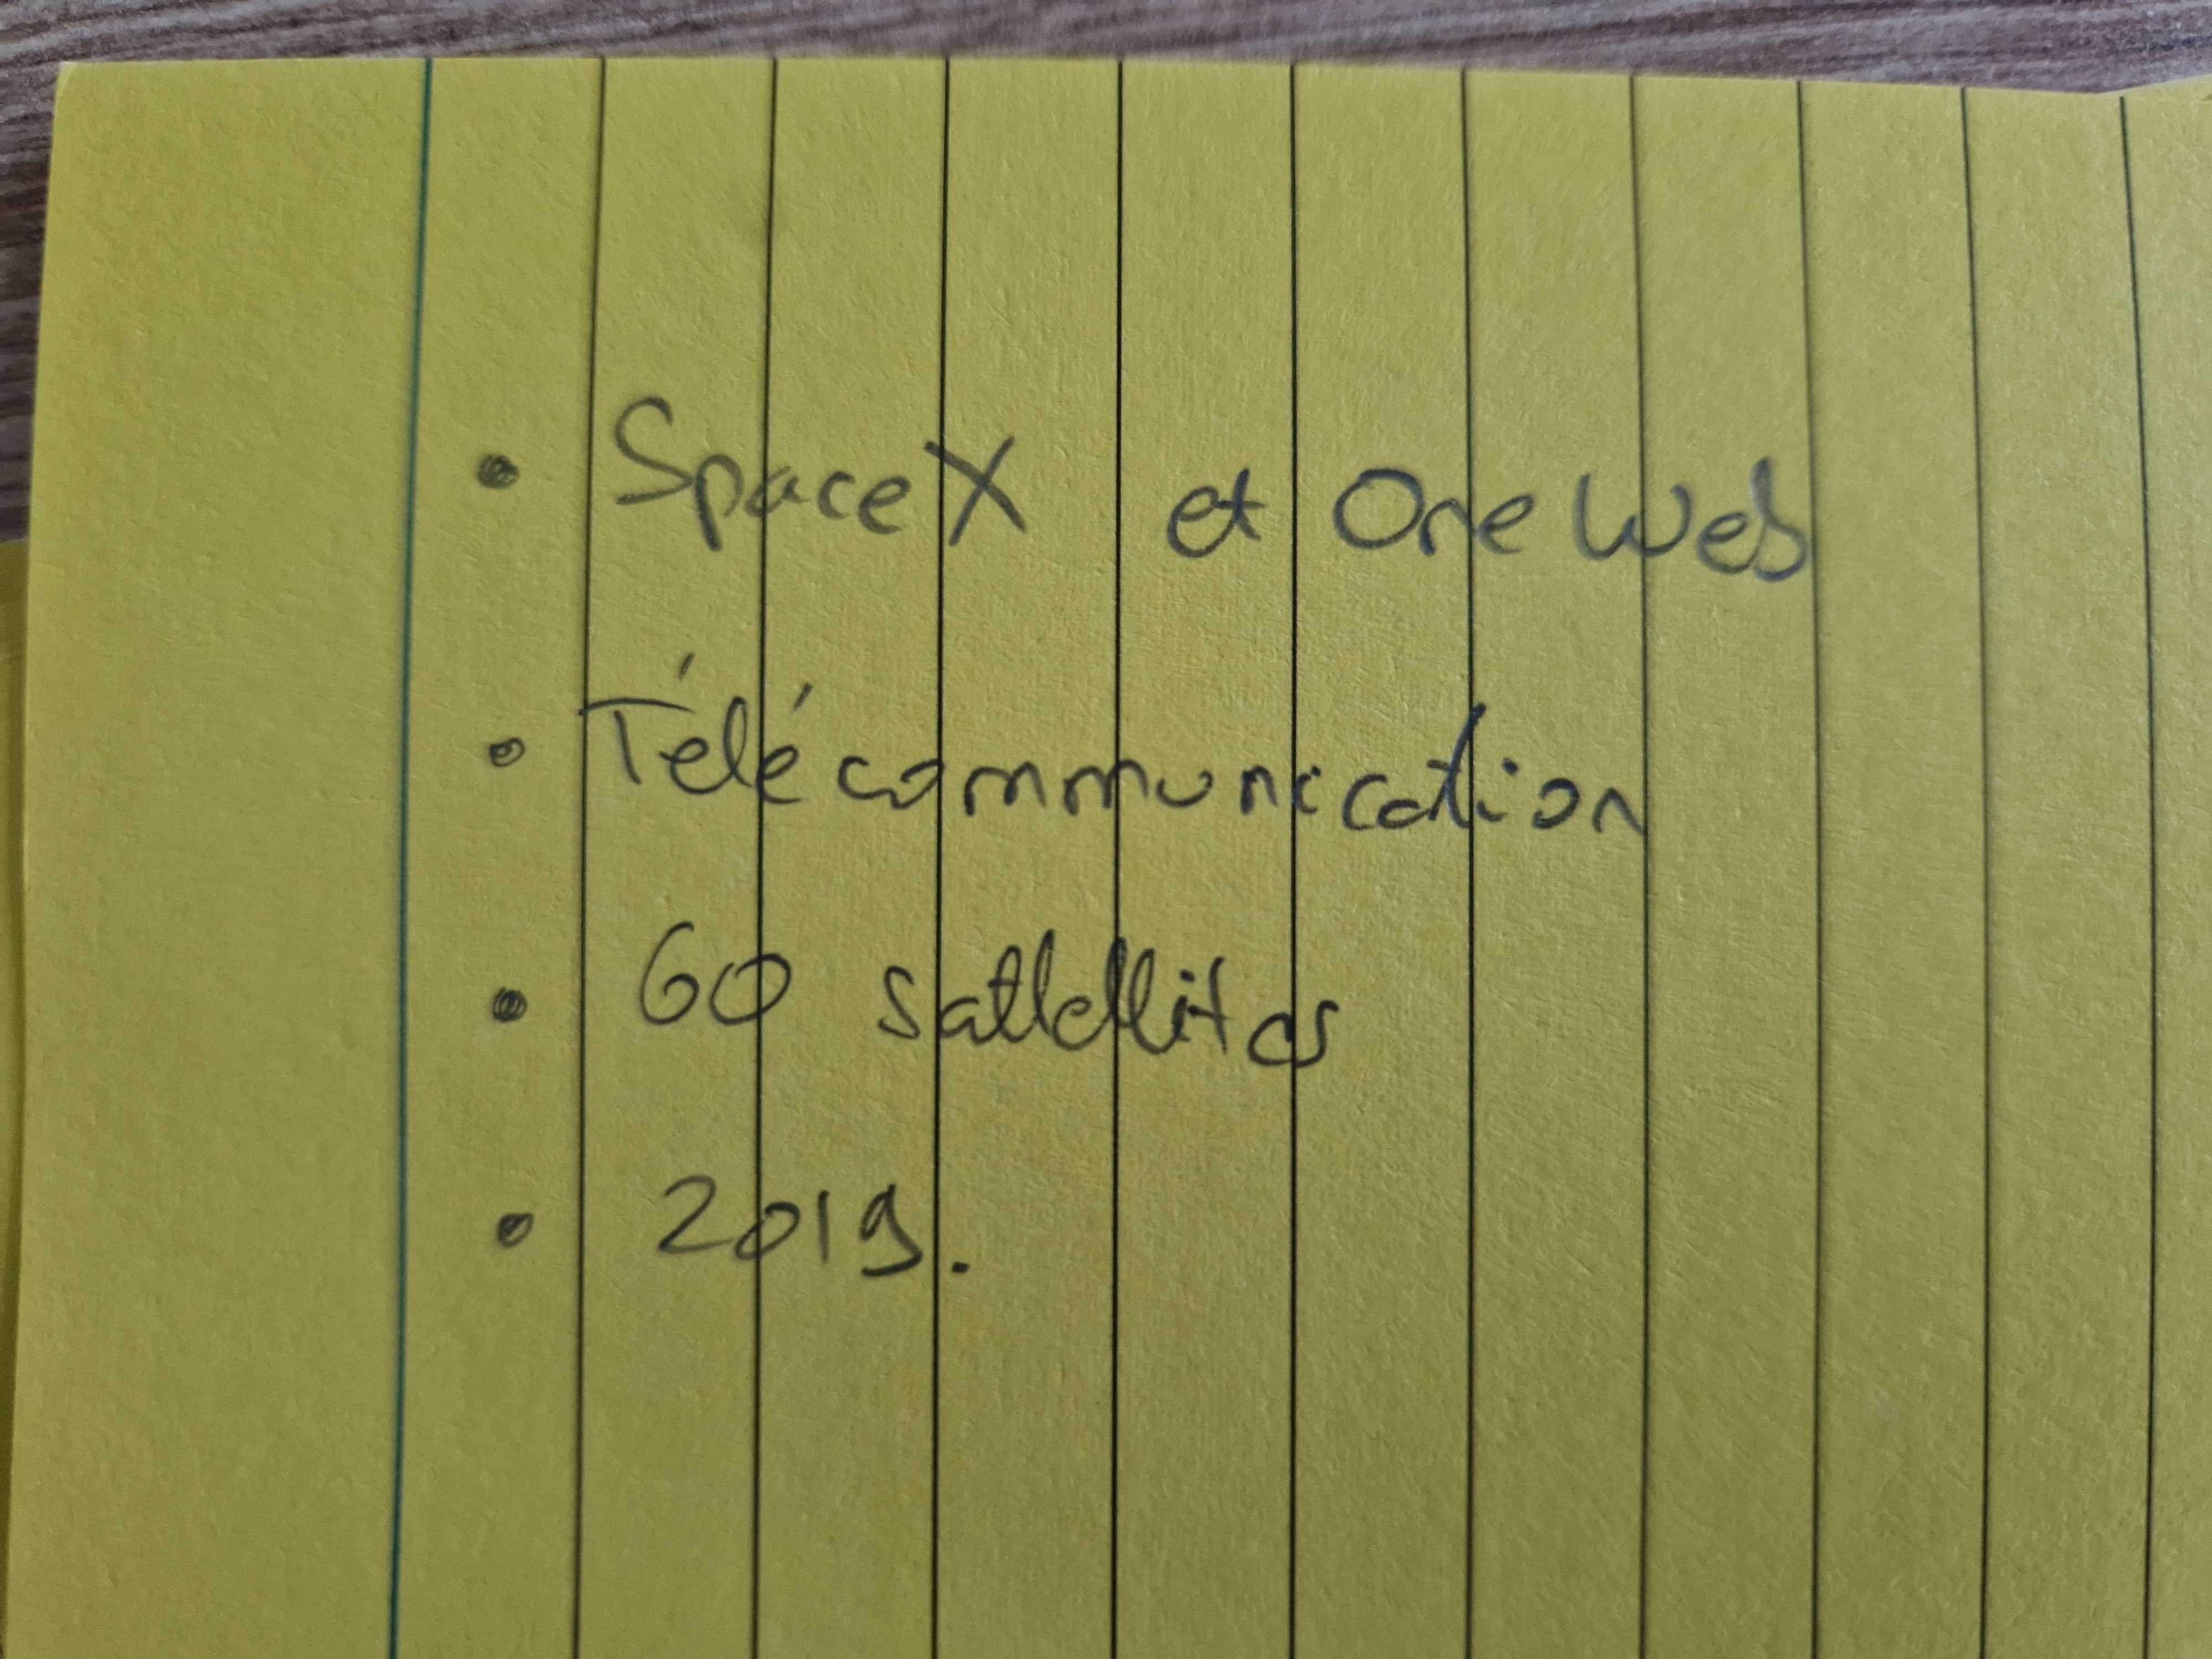 • SpaceX et OneWeb
• Télécommunication
• 60 sattellites
• 2019.